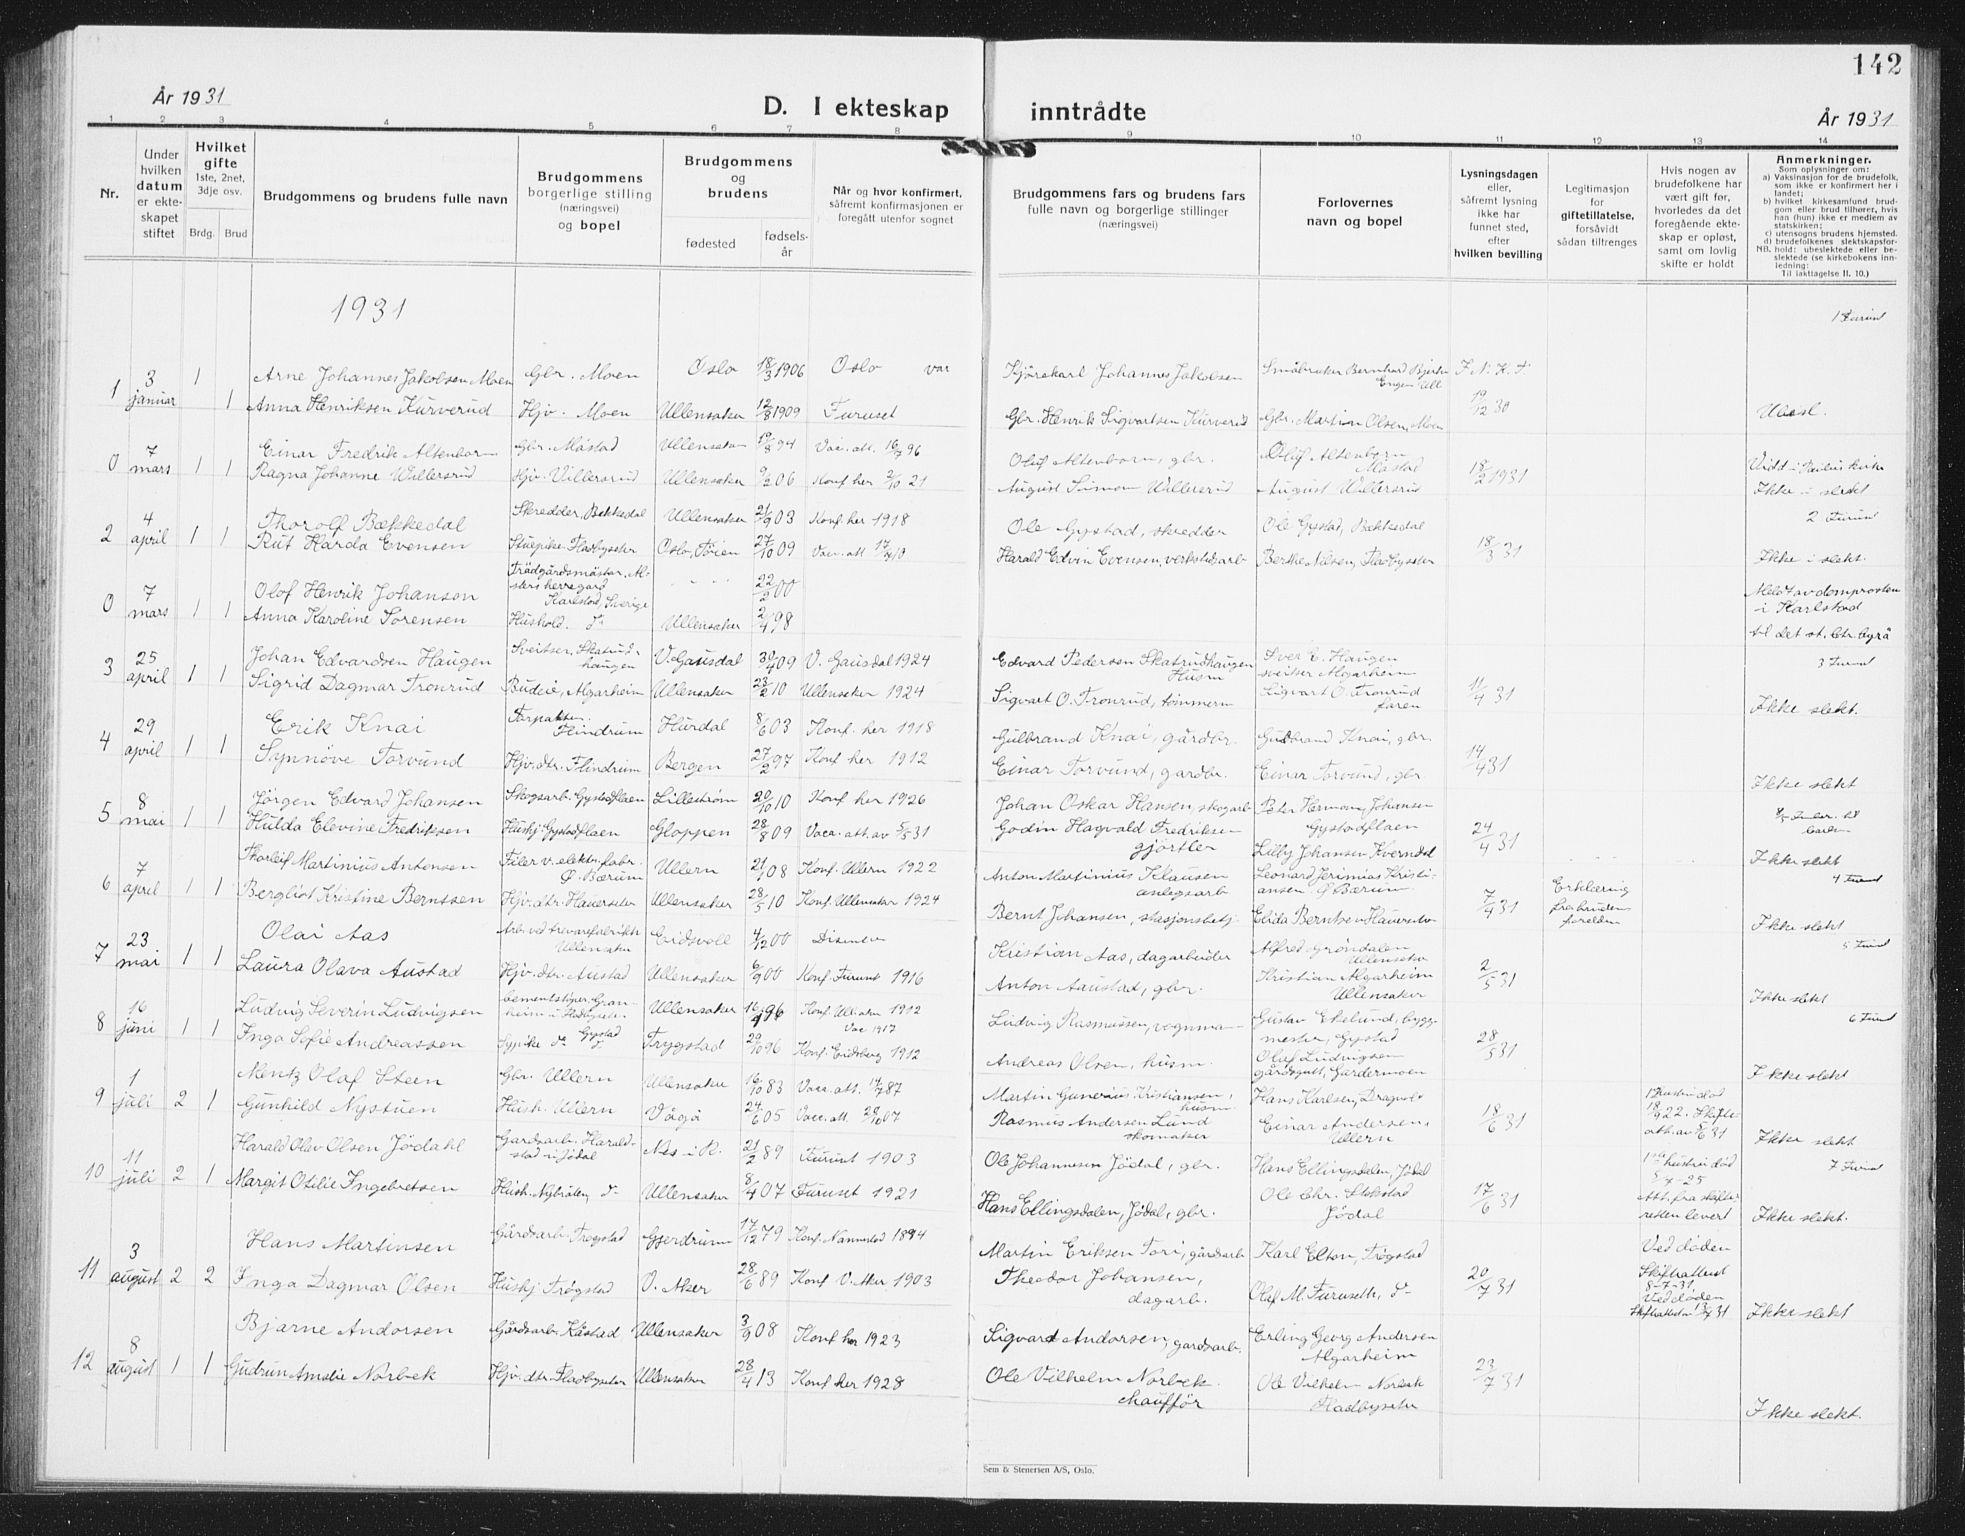 142
År 1931
D. I ekteskap inntrådte
År 1931
1 2 3 4 5 6 7 8 9 10 11 12 13 14
Nr.
Under hvilken datum er ekte-skapet stiftet
Hvilket gifte
1ste, 2net, 3dje osv.
Brdg. Brud
Brudgommens og brudens fulle navn
Brudgommens
borgerlige stilling
(næringsvei)
og bopel
Brudgommens
og
brudens
fødested
fødsels-
år
Når og hvor konfirmert,
såfremt konfirmasjonen er
foregått utenfor sognet
Brudgommens fars og brudens fars
fulle navn og borgerlige stillinger
(næringsvei)
Forlovernes
navn og bopel
Lysningsdagen
eller,
såfremt lysning
ikke har
funnet sted,
efter
hvilken bevilling
Legitimasjon
for
giftetillatelse,
forsåvidt
sådan tiltrenges
Hvis nogen av
brudefolkene har
vært gift før,
hvorledes da det
foregående ekte-
skap er opløst,
samt om lovlig
skifte er holdt
Anmerkninger.
Som oplysninger om:
a) Vaksinasjon for de brudefolk,
som ikke er konfirmert her i
landet;
b) hvilket kirkesamfund brud-
gom eller brud tilhører, hvis
han (hun) ikke er medlem av
statskirken;
c) utensogns brudens hjemsted.
d) brudefolkenes slektskapsfor-
NB. hold: ubeslektede eller be-
slektede (se kirkebokens inn-
ledning:
Til iakttagelse II. 10.)
1931
1 3 januar 1 Arne Johannes Jakobsen Moen Gbr. Moen Oslo 18/3 1906 Oslo vår Kjørekarl Johannes Jakobsen Småbruker Bernhard
1 Anna Henriksen Kurverud Hjv. Moen Ullensaker 12/8 1909 Furuset Gbr. Henrik Sigvartsen Kurverud Gbr. Martin Olsen, Moen 19/12 30
0 7 mars 1 1 Einar Fredrik Altenborn Gbr. Måstad Ullensaker 94 Vac. att. 16/7 96 Olaf Altenborn, gbr. Olaf Altenborn Måstad
Ragna Johanne Willersrud Hjv. Villersrud Ullensaker 06 Konf her 2/10 21 August Simon Willersrud August Willersrud 18/2 1931 Ikke i slekt
2 4 april 1 1 Thorolf Bækkedal Skredder, Bekkedal Ullensaker 21/9 03 Konf. her 1918 Ole Gystad, skredder Ole Gystad, Bækkedal
Rut Harda Evensen Stuepike, Fladbyseter Oslo, Tøien 27/10 09 Harald Edvin Evensen, verkstedsarb. Berthe Nilsen, Fladbyseter 18/3 31 Ikke i slekt.
0 7 mars 1 1 Olof Henrik Johanson Trädgårdsmästar Karlstad, Sverige 22/2 00 i Karlstad
Anna Karoline Sørensen Hushold. Ullensaker 2/4 98
3 25 april 1 1 Johan Edvardsen Haugen Sveitser, Skatrudhaugen V. Gausdal 09 V. Gausdal 1924 Edvard Pedersen Skatrudhaugen Husm Iver E. Haugen sveitser Algarheim
Sigrid Dagmar Tronrud Budeie, Algarheim Ullensaker 23/2 10 Ullensaker 1924 Sigvart O. Tronrud, tømmerm Sigvart O. Tronrud faren 11/4 31 Ikke slekt.
4 29 april 1 1 Erik Knai Forpakter Flindrum Hurdal 8/6 03 Konf. her 1918 Gulbrand Knai, gårdbr. Gulbrand Knai, gbr.
Synnøve Torvund Hjv. dtr. Flindrum Bergen 27/2 97 Konf her 1912 Einar Torvund, gardbr. Einar Torvund, gbr 14/4 31 Ikke slekt
5 8 mai 1 1 Jørgen Edvard Johansen Skogsarb. Gystadflaen Lillestrøm 20/10 10 Konf her 1926 Johan Oskar Hansen, skogarb Peter Hermann Johansen Gystadflaen
Hulda Elevine Fredriksen Hushj. Gystadflaen Gloppen 28/8 09 Vacc. att. av 5/5 31 Godin Hagvald Fredriksen gjørtler Lilly Johansen Kverndal 24/4 31 Ikke slekt
6 7 april 1 1 Thorleif Martinius Antonsen Filer v. elektr. fabr. Ø. Bærum Ullern 08 Konf. Ullern 1922 Anton Martinius Klausen anlegsarb Leonard Jerimias Kristiansen Ø Bærum
Bergliot Kristine Berntsen Hjv. dtr. Hauerseter Ullensaker 28/5 10 Konf. Ullensaker 1924 Bernt Johansen, stasjonsbetj. Elida Berntsen Hauerseter 7/4 31 Erklæring fra brudens forelder Ikke slekt
7 23 mai 1 1 Olai Aas Arb. ved trevarefabrikk Ullensaker Eidsvoll 4/12 00 Disenter Kristian Aas, dagarbeider Alfred Grøndalen Ullensaker
Laura Olava Austad Hjv. dtr. Austad Ullensaker 6/9 00 Konf. Furuset 1916 Anton Aaustad, gbr. Kristian Algarheim Ullensaker 2/5 31 Ikke slekt
8 16 juni 1 1 Ludvig Severin Ludvigsen Ullensaker 96 1912 Vac 1917 Ludvig Rasmussen, Gustav Ekelund, byggmester, Gystad
Inga Sofie Andreassen Sypike Gystad Trygstad 20/10 96 Konf. Eidsberg 1912 Andreas Olsen, husm. Olaf Ludvigsen gårdsgutt, Gardermoen 28/5 31 Ikke slekt
9 1 juli 2 1 Mentz Olaf Steen Gbr. Ullern Ullensaker 16/10 83 Vacc. att. 14/7 87 Martin Gunerius Kristiansen, husm. Hans Karlsen, Dragvold
Gunhild Nystuen Hush. Ullern Vågå 24/6 05 Vacc. att. 07 Rasmus Andersen Lund skomaker Einar Andersen, Ullern 18/6 31 Ikke slekt
10 11 juli 2 1 Harald Olav Olsen Jødahl Gardsarb. Haraldstad i Jødal Nes i R. 21/2 89 Furuset 1903 Ole Johannesen Jødal, gbr. Hans Ellingsdalen, Jødal 1ste hustru død Att. fra skifteretten levert
Margit Otilie Ingebretsen Hush. Nybråten, Ullensaker 8/4 07 Furuset 1921 Hans Ellingsdalen, Jødal, gbr. Ole Chr. Jødal 17/6 31 Ikke slekt.
11 3 august 2 2 Hans Martinsen Gårdsarb. Trøgstad Gjerdrum 17/12 79 Konf. Nannestad 1894 Martin Eriksen Tori, gårdsarb Karl Elton, Trøgstad Ved døden Skifteattest 8-7-31
Inga Dagmar Olsen Hushj Trøgstad V. Aker 28/6 89 Konf V. Aker 1903 Theodor Johansen, dagarb. Olaf M. Furuseth, 20/7 31 Ved døden Skifteattest 13/7 31 Ikke slekt
12 8 august 1 1 Bjarne Andorsen Gårdsarb. Kåstad Ullensaker 3/9 08 Konf her 1923 Sigvart Andorsen, gardsarb. Erling Georg Andersen Algarheim
Gudrun Amalie Norbek Hjv. dtr. Fladbyseter Ullensaker 28/4 13 Konf her 1928 Ole Vilhelm Norbek chauffør Ole Vilhelm Norbek Fladbyseter 23/7 31 Ikke slekt.
Sem & Stenersen A/S, Oslo.